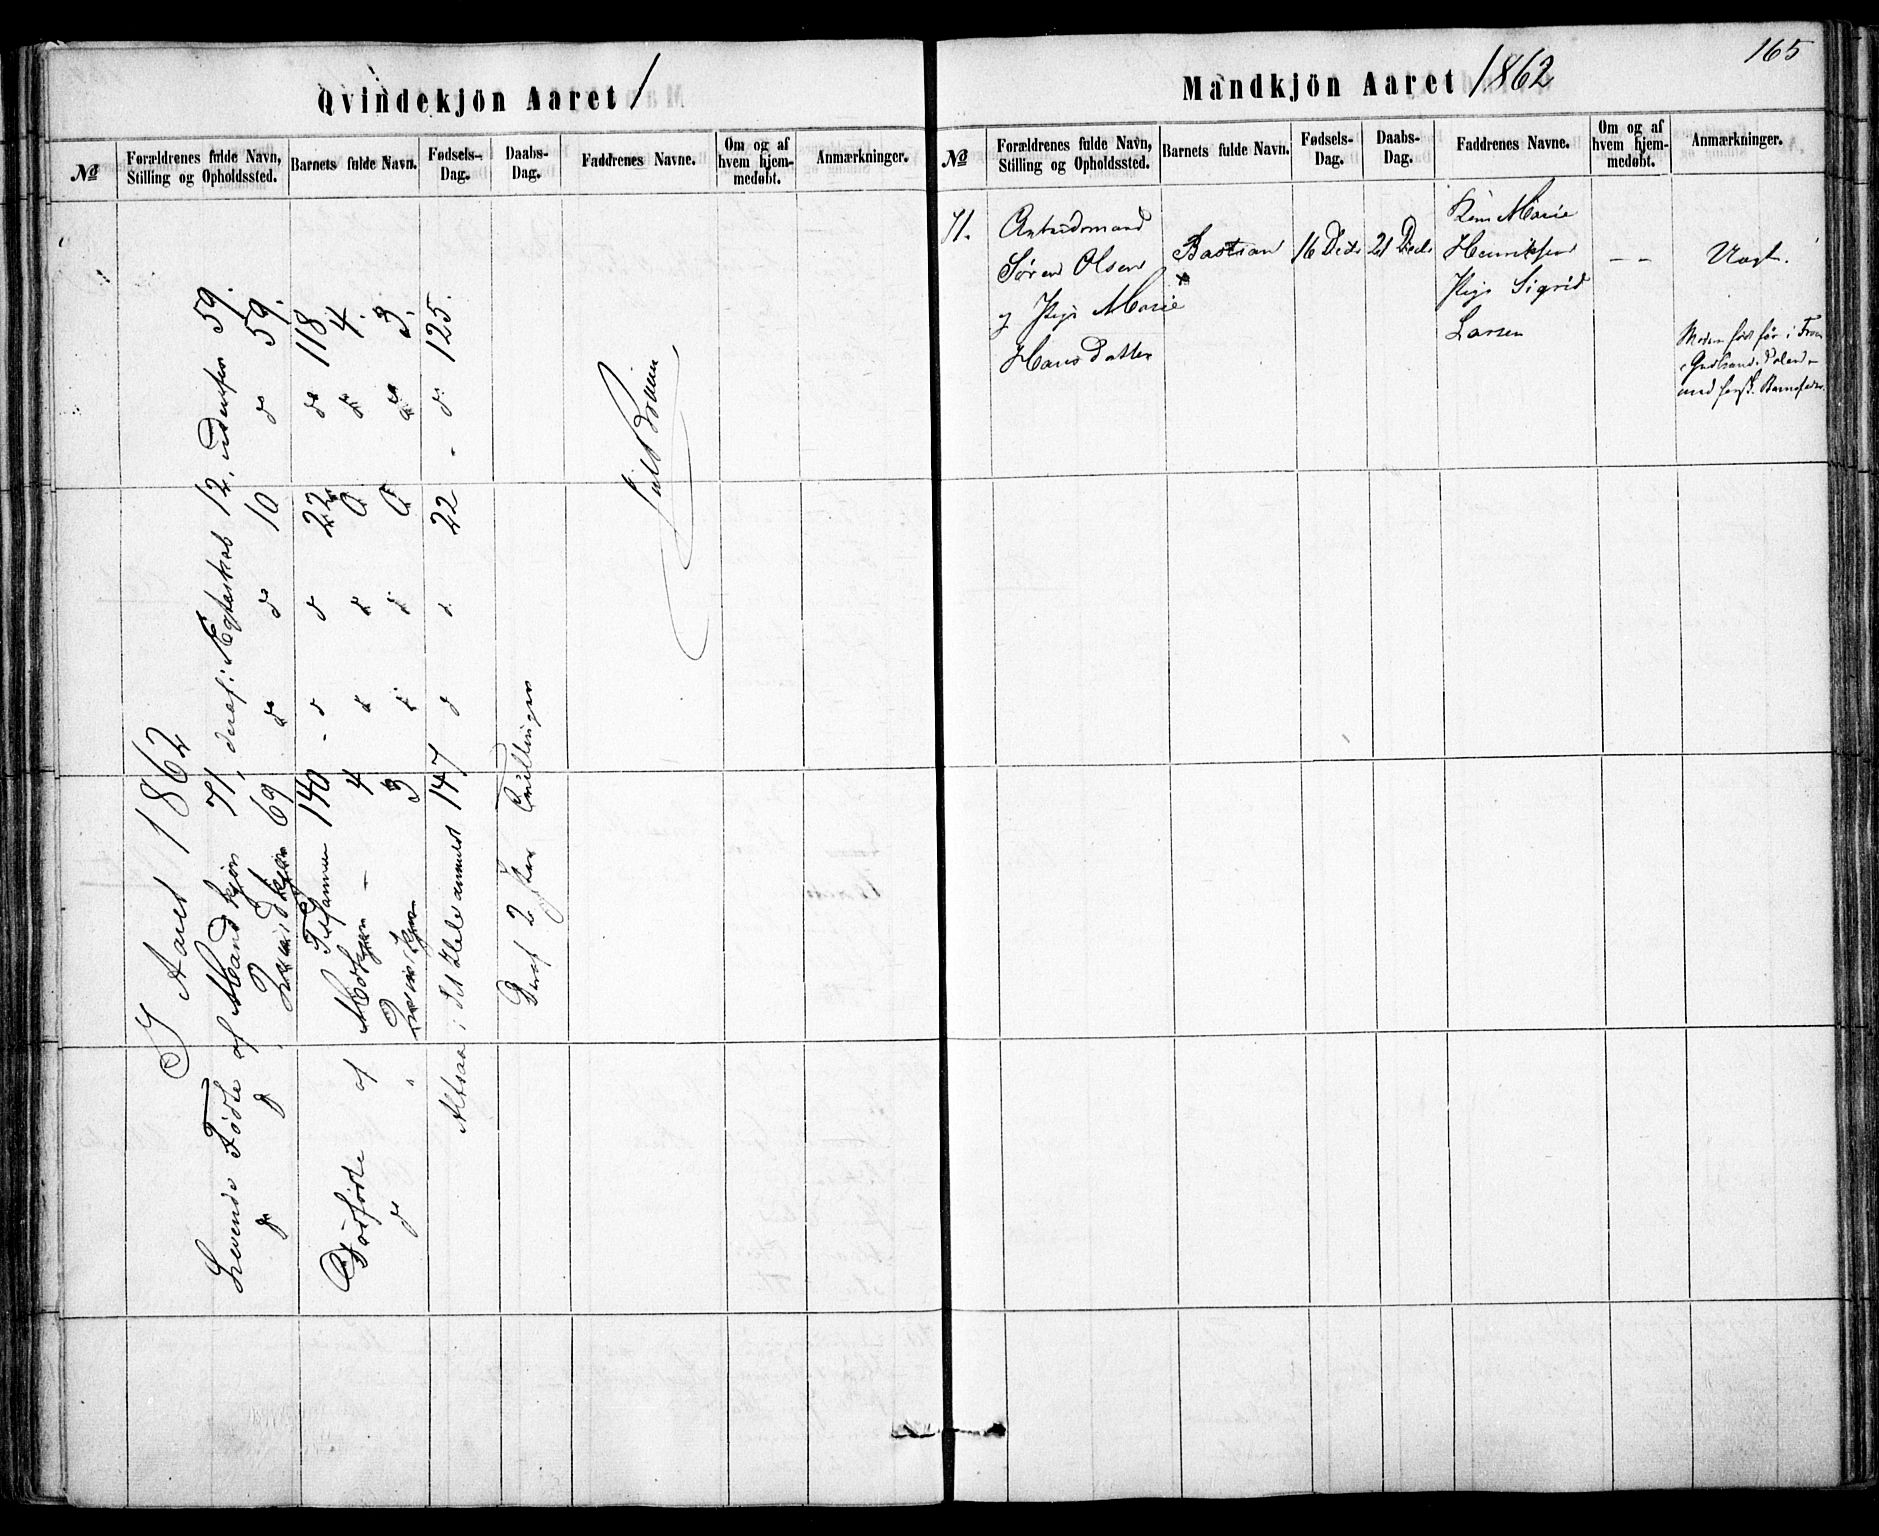 165
Qvindekjön Aaret 1
№
Forældrenes fulde Navn, Stilling og Opholdssted.
Barnets fulde Navn.
Fødsels-Dag.
Daabs-Dag.
Faddrenes Navne.
Om og af hvem hjem-medøbt.
Anmærkninger.
I Aaret 1862
Levende Fødte af Mandkjøn 71, deraf i Ægteskab 12, udenfor 59.
do do Qvindekjøn 69 do do 10 do 59.
Tilsammen 140 - d d 22 do 118
Dødfødte af Mdkjøn - 4 d d 0 do 4.
do " Qvindekjøn 3 d d 0 do 3.
Altsaa i det Hele anmeldt 147 d d 22 - d. 125.
Deraf 2 Tvillinger
Mandkjön Aaret 1862
№
Forældrenes fulde Navn, Stilling og Opholdssted.
Barnets fulde Navn.
Fødsels-Dag.
Daabs-Dag.
Faddrenes Navne.
Om og af hvem hjem-medøbt.
Anmærkninger.
71.
Arbeidsmand
Søren Olsen
og Pige Marie
Hansdatter
Bastian
16 Decb
21 Decb
Marie
Henriksen
Pige Sigrid
Larsen
- -
Uægt.
Moderen før i
Gudbrandsdalen
med Barnefader